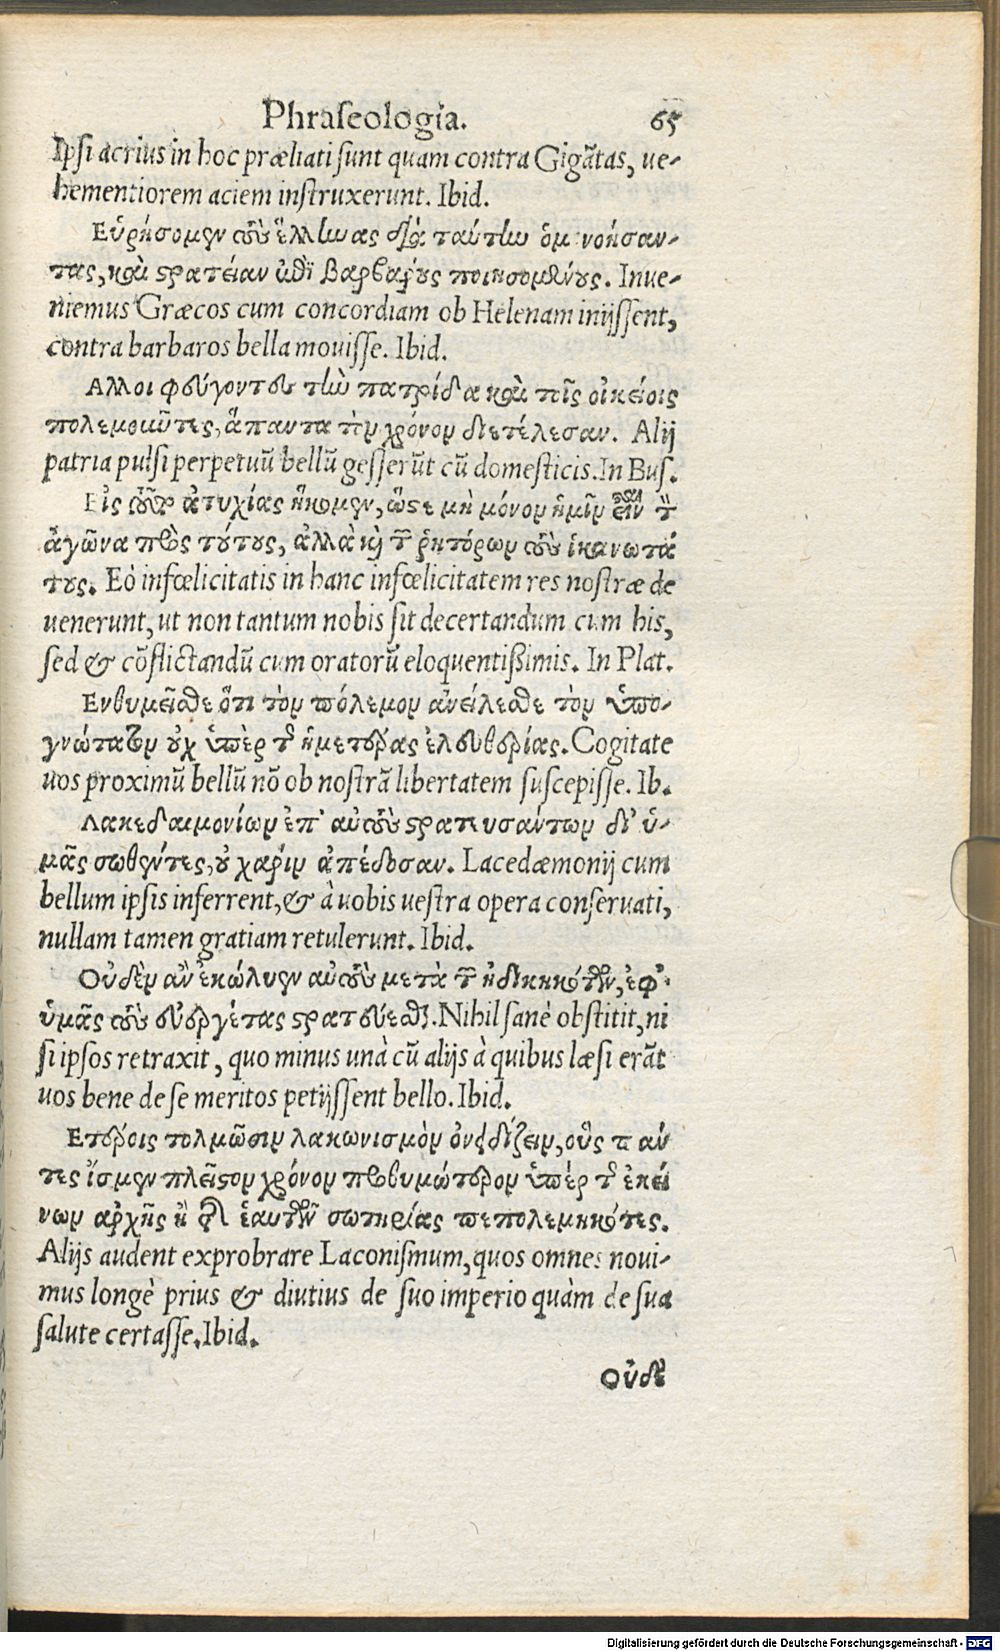 Phraseologia. 65
Ipsi acrius in hoc præliati sunt quam contra Gigãtas, ue-
hementiorem aciem instruxerunt. Ibid.
Εὑρήσομεν τοὺς ἕλληνας διὰ ταύτην ὁμονοήσαν-
τας, καὶ στρατείαν ἐπὶ βαρβάρους ποιησομένους. Inue-
niemus Græcos cum concordiam ob Helenam inijssent,
contra barbaros bella mouisse. Ibid.
Αλλοι φεύγοντες τὴν πατρίδα καὶ τοῖς οἰκείοις
πολεμοῦντες, ἅπαντα τὸν χρόνον διετέλεσαν. Alij
patria pulsi perpetuũ bellũ gesserũt cũ domesticis. In Bus.
Εἰς τοῦτο ἀτυχίας ἥκομεν, ὥστε μὴ μόνον ἡμῖν εἶναι τὸν
ἀγῶνα πρὸς τούτους, ἀλλὰ καὶ τῶν ῥητόρων τοὺς ἱκανωτά
τους. Eò infœlicitatis in hanc infœlicitatem res nostræ de
uenerunt, ut non tantum nobis sit decertandum cum his,
sed & cõflictandũ cum oratorũ eloquentißimis. In Plat.
Ενθυμεῖσθε ὅτι τὸν πόλεμον ἀνείλεσθε τὸν ὑπο-
γυώτατον οὐχ ὑπὲρ τῆς ἡμετέρας ἐλευθερίας. Cogitate
uos proximũ bellũ nõ ob nostrã libertatem suscepisse. Ib.
Λακεδαιμονίων ἐπ' αὐτοὺς στρατευσάντων δι' ὑ-
μᾶς σωθέντες, οὐ χάριν ἀπέδοσαν. Lacedæmonij cum
bellum ipsis inferrent, & à uobis uestra opera conseruati,
nullam tamen gratiam retulerunt. Ibid.
Οὐδὲν ἂν ἐκώλυεν αὐτοὺς μετὰ τῶν ἠδικηκότων, ἐφ'
ὑμᾶς τοὺς εὐεργέτας στρατεύεσθαι. Nihil sanè obstitit, ni
si ipsos retraxit, quo minus unà cũ alijs à quibus læsi erãt
uos bene de se meritos petijssent bello. Ibid.
Ετέροις τολμῶσιν λακωνισμὸν ὀνειδίζειν, οὓς παν
τες ἴσμεν πλεῖστον χρόνον προθυμώτερον ὑπὲρ τῆς ἐκεί
νων ἀρχῆς ἢ περὶ ἑαυτῶν σωτηρίας πεπολεμηκότες.
Alijs audent exprobrare Laconismum, quos omnes noui-
mus longè prius & diutius de suo imperio quàm de sua
salute certasse. Ibid.
οὐδὲ
Digitalisierung gefördert durch die Deutsche Forschungsgemeinschaft - DFG